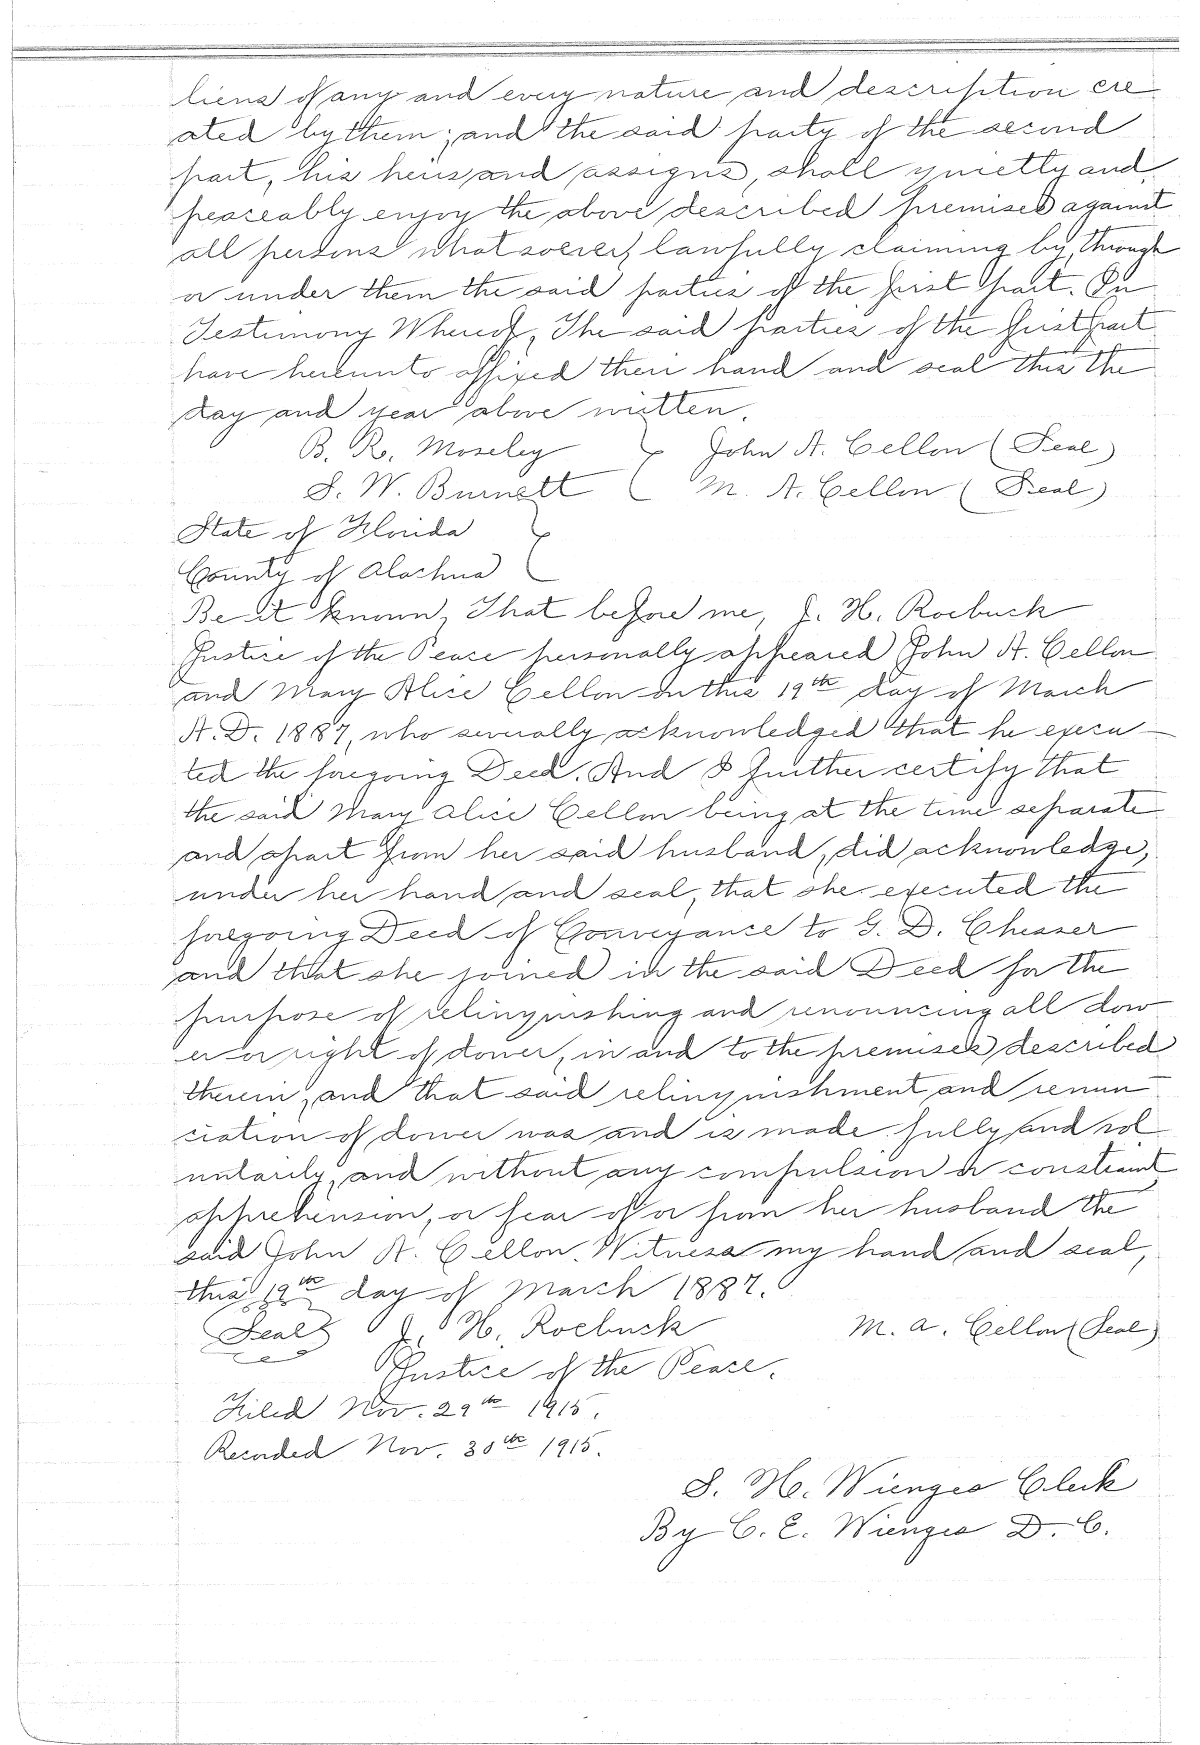 liens of any and every nature and description cre
ated by them; and the said party of the second
part, his heirs and assigns, shall quietly and
peaceably enjoy the above described premises against
all persons whatsoever, lawfully claiming by, through
or under them the said parties of the first part. In
Testimony Whereof, The said parties of the first part
have hereunto affixed their hand and seal this the
day and year above written.
B. R. Moseley } John A. Cellon (Seal)
S. W. Burnett } M. A. Cellon (Seal)
State of Florida }
County of Alachua }
Be it known, That before me, J. H. Roebuck
Justice of the Peace personally appeared John A. Cellon
and Mary Alice Cellon on this 19th day of March
A.D. 1887, who severally acknowledged that he execu-
ted the foregoing Deed. And I further certify that
the said Mary Alice Cellon being at the time separate
and apart from her said husband, did acknowledge,
under her hand and seal, that she executed the
foregoing Deed of Conveyance to G. D. Chesser
and that she joined in the said Deed for the
purpose of relinquishing and renouncing all dow
er or right of dower, in and to the premises described
therein, and that said relinquishment and renun-
ciation of dower was and is made fully and vol
untarily, and without any compulsion or constraint
apprehension, or fear of or from her husband the
said John A. Cellon. Witness my hand and seal,
this 19th day of March 1887.
(Seal) J. H. Roebuck M. A. Cellon (Seal)
Justice of the Peace.
Filed Nov. 29th 1915.
Recorded Nov. 30th 1915.
S. H. Wienges Clerk
By C. E. Wienges D. C.